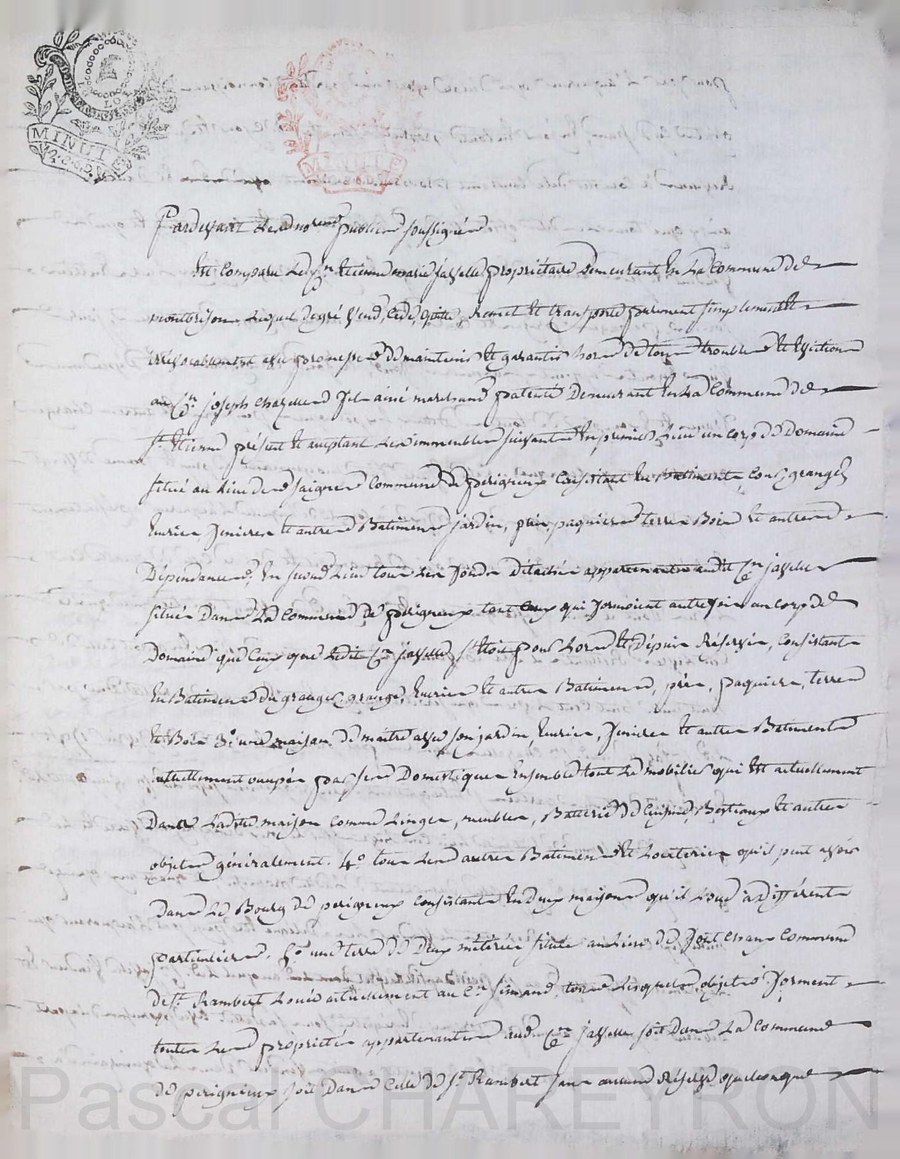 LOI
MINUTE
MINUTE
Pardevant Les nores publics soussignés
Est Comparu Le Cen Etienne marie jasselle propriétaire Demeurant En La Commune de
montbrison Lequel de gré Vend, Cède, quitte, Remet Et transporte purement simplement Et
irrévocablement avec promesse de maintenir Et garantir hors de tous troubles Et Eviction
au Cen joseph Chazelles fils ainé marchand patenté Demeurant En La Commune de
St Etienne présent Et aceptant Les immeubles suivants En premier Lieu un corps de Domaine
situé au Lieu de Commune de perigneux Consistant En Batiments, granges
Ecuries fenieres Et autres Batiments jardin, prés, paquiers terres Bois Et autres
Dépendances, En second Lieu tous Les fonds détachés appartenants audit Cen jasselle
situés Dans La Commune de perigneux tant Ceux qui formoient autrefois un corps de
Domaine que Ceux que Ledit Cen jasselle s'étoit pour Lors Et Depuis Réservés, consistant
En Batiments granges, Ecuries Et autres Batiments, prés, paquiers, terres
Et Bois 3o une maison de maitre avec son jardin Ecuries, fenieres Et autres Batiments
actuellement occupés par ses Domestiques Ensemble tout Le mobilier qui Est actuellement
Dans Ladite maison Comme Linges, meubles, Batterie de Cuisine, Bestiaux Et autres
objets généralement. 4o tous Les autres Batiments Et qu'il peut avoir
Dans Le Bourg de perigneux Consistants En deux maisons qu'il Loue à différents
particuliers. 5o une terre de Deux métérées située au Lieu de Commune
de St Rambert Louée actuellement au Cen simand, tous Lesquels objets forment
toutes Les propriétés appartenantes aud. Cen jasselle soit Dans La Commune
de perigneux soit Dans Celle de St Rambert sans aucune Réserve quelconque
Pascal CHAREYRON